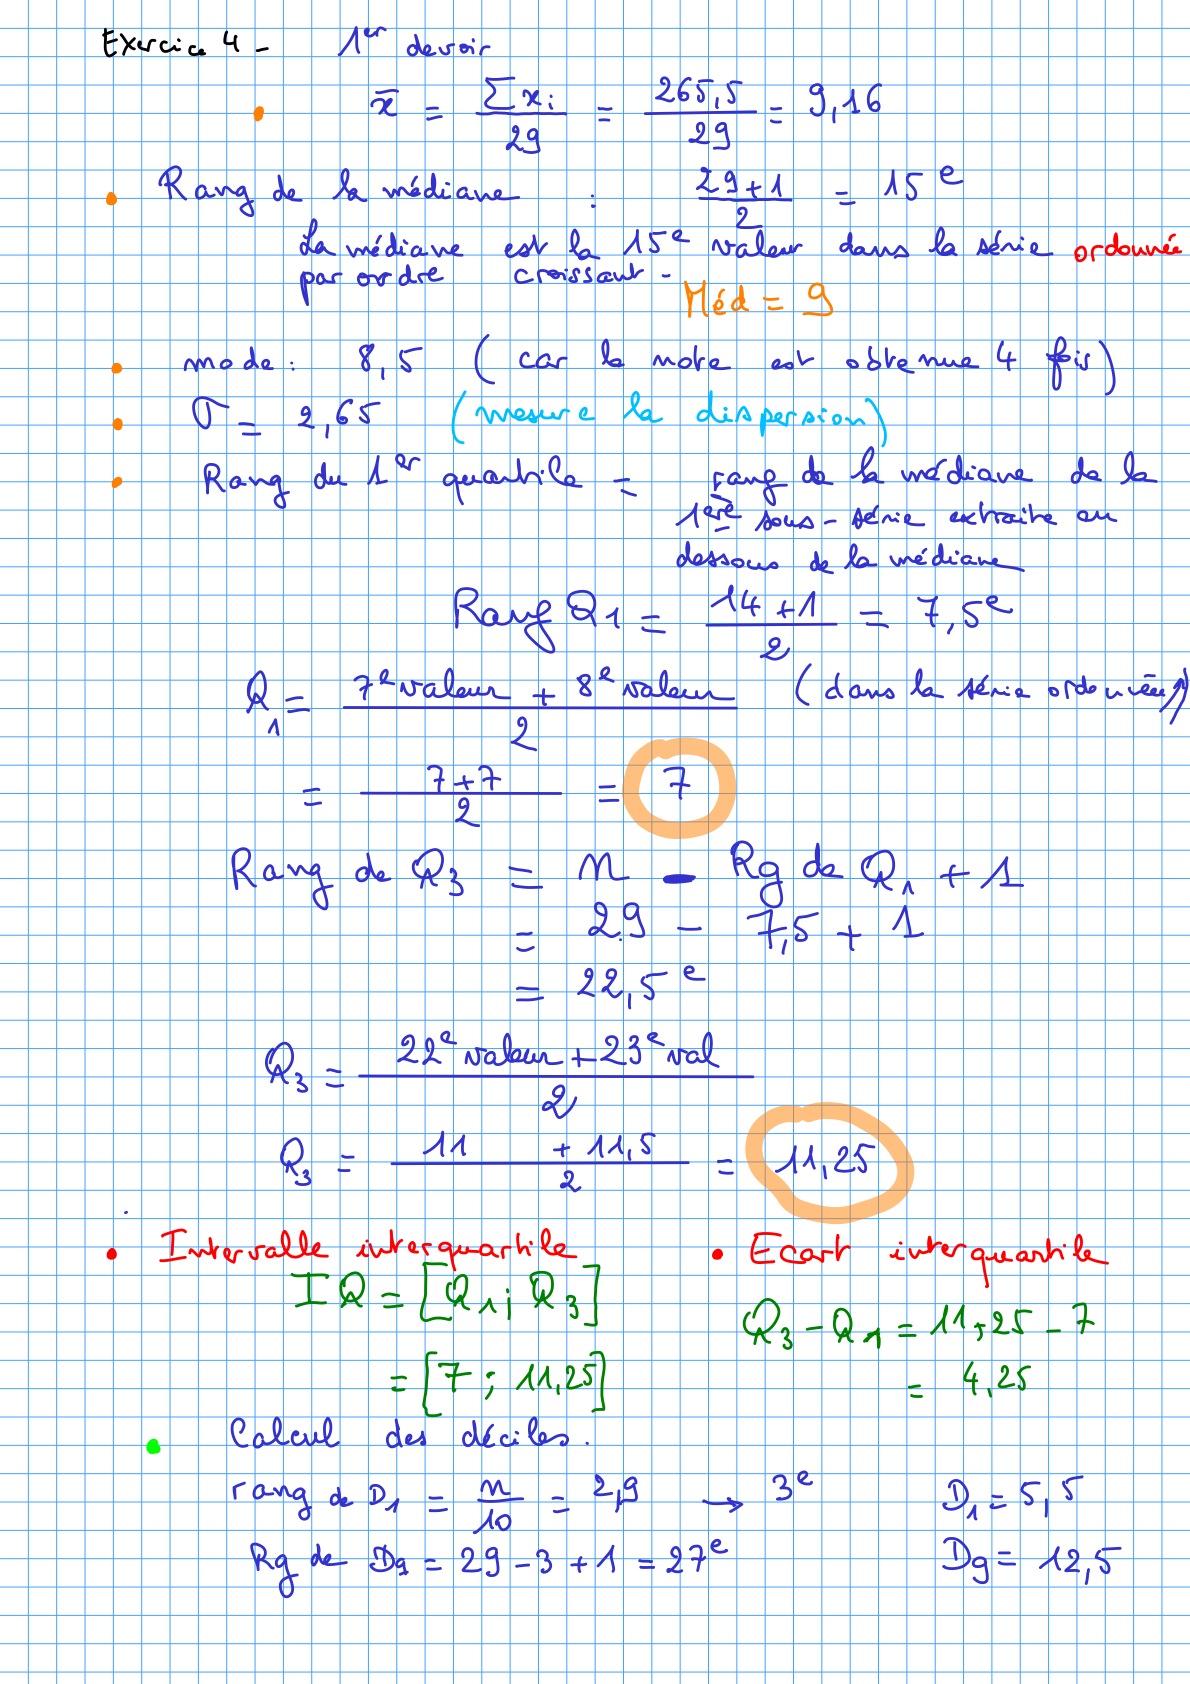 Exercice 4 - 1er devoir
• x̄ = Σxi / 29 = 265,5 / 29 = 9,16
• Rang de la médiane : (29+1) / 2 = 15e
La médiane est la 15e valeur dans la série ordonnée
par ordre croissant -
Méd = 9
• mode : 8,5 ( car la note est obtenue 4 fois )
• σ = 2,65 ( mesure la dispersion )
• Rang du 1er quartile = rang de la médiane de la
1ère sous-série extraite au
dessous de la médiane
Rang Q1 = (14+1) / 2 = 7,5e
Q1 = (7e valeur + 8e valeur) / 2 ( dans la série ordonnée ↗ )
= (7+7) / 2 = 7
Rang de Q3 = n - Rg de Q1 + 1
= 29 - 7,5 + 1
= 22,5e
Q3 = (22e valeur + 23e val) / 2
Q3 = (11 + 11,5) / 2 = 11,25
• Intervalle interquartile • Ecart interquartile
IQ = [Q1 ; Q3]
Q3 - Q1 = 11,25 - 7
= [7 ; 11,25]
= 4,25
• Calcul des déciles.
rang de D1 = n / 10 = 2,9 → 3e D1 = 5,5
Rg de D9 = 29 - 3 + 1 = 27e D9 = 12,5